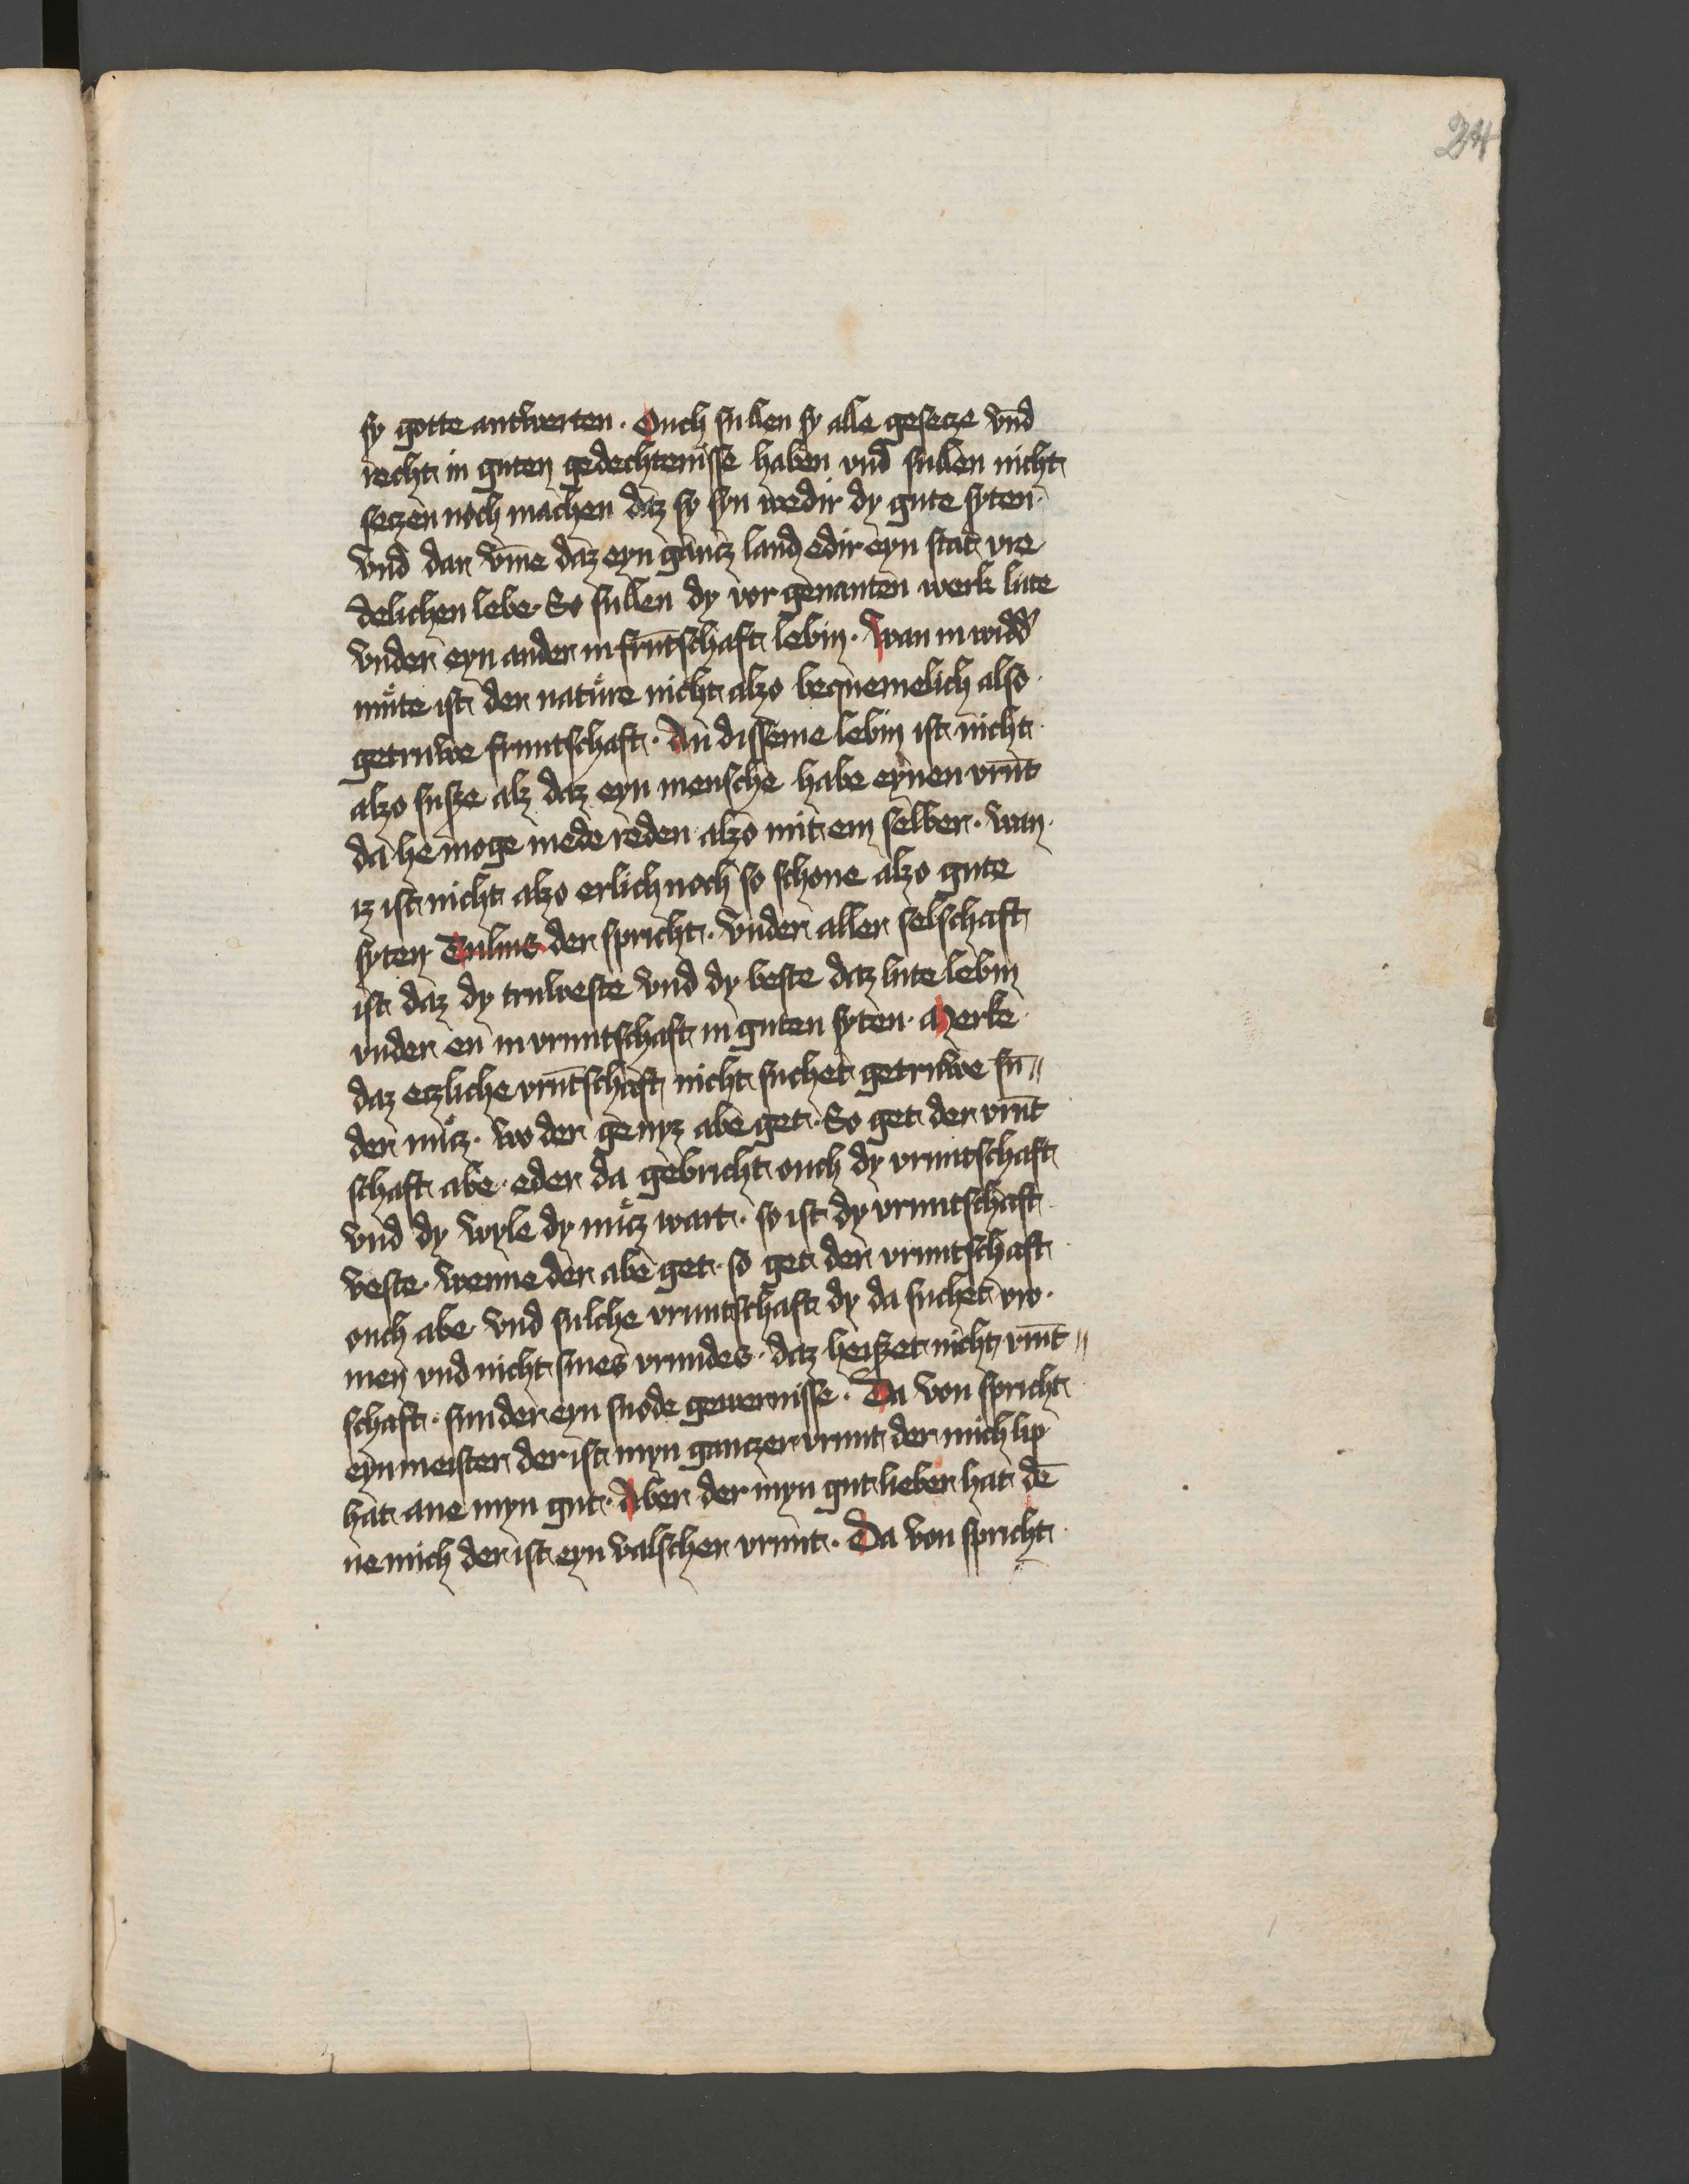 24
sy gotte antwerten · Ouch sullen sy alle gesecze vnd̄
recht in guten gedechtenisse haben vnd̄ sullen nicht
seczen noch machen daz sy syn wedir dy gute syten ·
vnd̄ dar vm̄e daz eyn gancz land edir eyn stat vre
delichen lebe · So sullen dy vor genanten werk lute
vnder eyn ander in frūtschaft lebin · Wan in widd'
mu͛te ist der natu͛re nicht alzo bequemelich also
getruwe fruntschaft · An disseme lebin ist nicht
alzo susze alz daz eyn mensche habe eynen vrūt
da he moge mede reden alzo mit em selber · wan
iz ist nicht alzo erlich noch so schone alzo gute
syten · Tulius der spricht · vnder aller selschaft
ist daz dy truweste vnd dy beste daz lute lebin
vnder en in vruntschaft in guten syten · Merke
daz eczliche vrūtschaft nicht suchet getruwe sū〃
der nu͛cz · wo der genyz abe get · So get der vrūt
schaft abe · eder da gebricht ouch dy vruntschaft
vnd dy wyle dy nu͛cz wart · so ist dy vruntschaft
veste · wenne der abe get · so get der vruntschaft
ouch abe · vnd sulche vruntschaft dy da suchet vro ·
men vnd nicht sines vrundes · daz heiszet nicht vrūt〃
schaft · sunder eyn snode gewernisse · Da von spricht
eyn meister der ist myn ganczer vrunt der mich lip
hat ane myn gut · Aber der myn gut lieber hat dē
ne mich der ist eyn valscher vrunt · Da von spricht